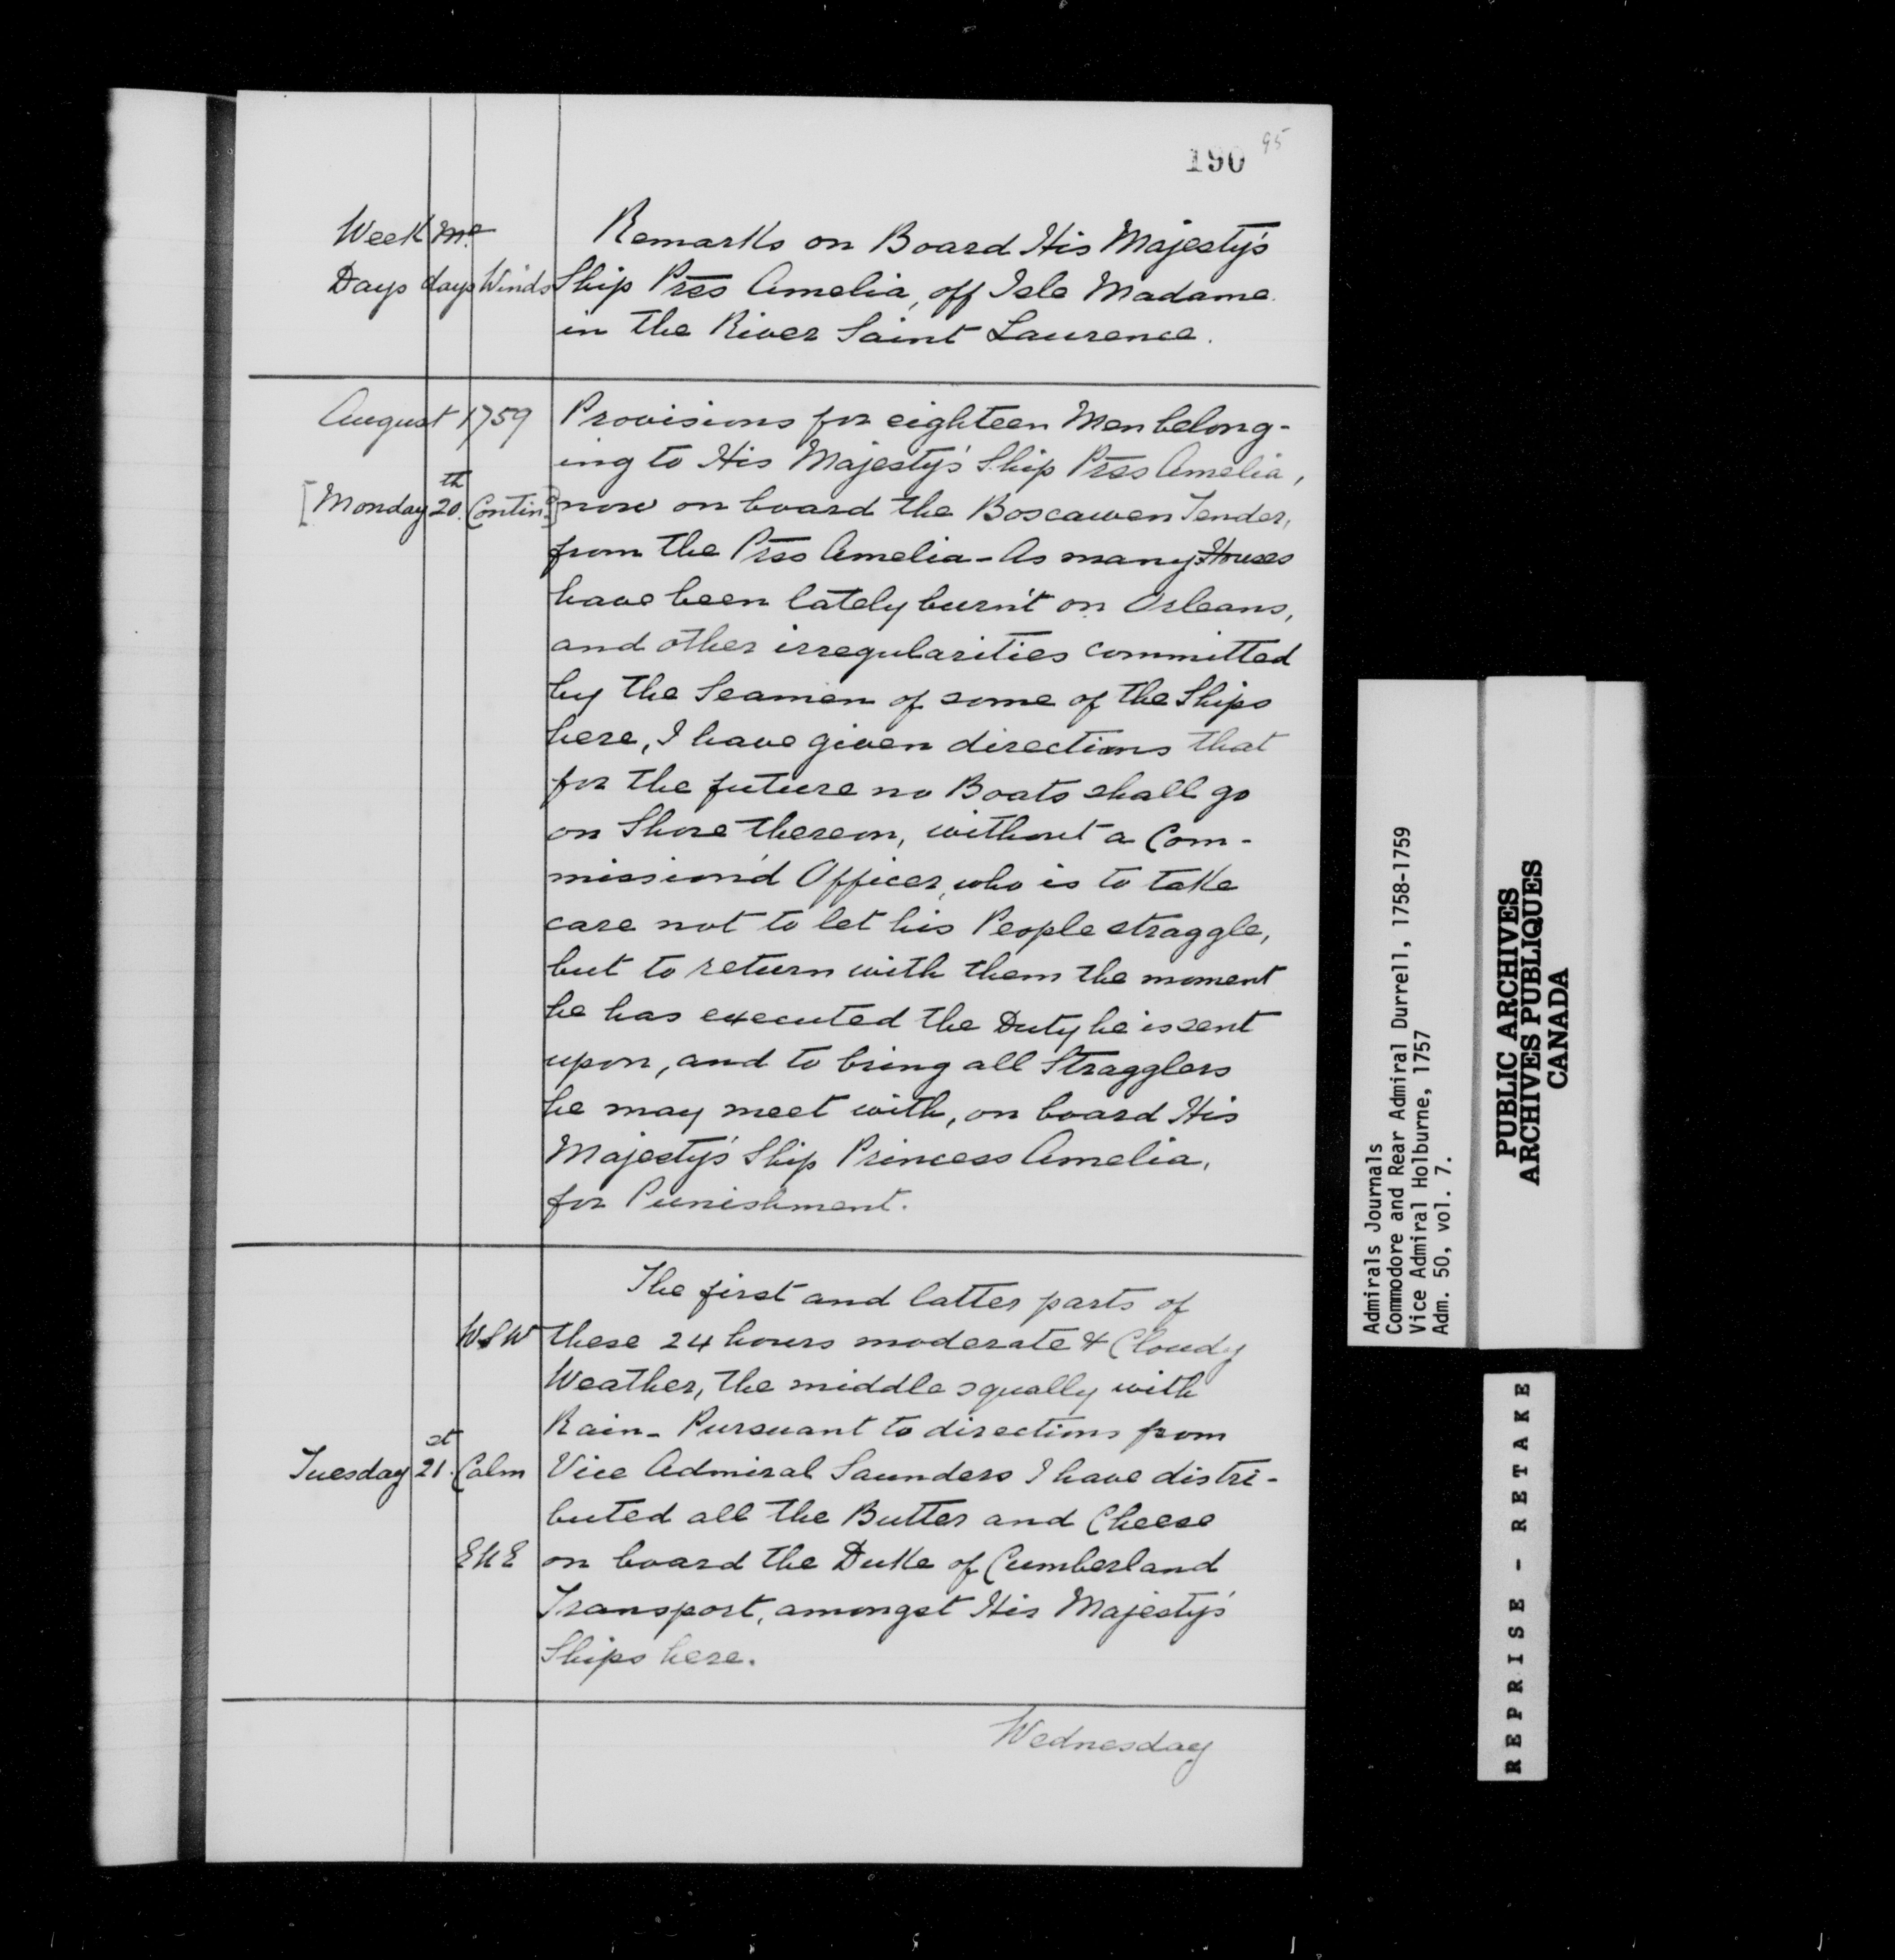 190 95
Week Mo. Remarks on Board His Majesty's
Days days Winds Ship Prss Amelia, off Isle Madame
in the River Saint Laurence.
August 1759 Provisions for eighteen Men belong-
ing to His Majesty's Ship Prss Amelia,
[Monday 20th. Contind] now on board the Boscawen Tender,
from the Prss Amelia - As many Houses
have been lately burn't on Orleans,
and other irregularities committed
by the Seamen of some of the Ships
here, I have given directions that
for the future no Boats shall go
on Shore thereon, without a Com-
mission'd Officer, who is to take
care not to let his People straggle,
but to return with them the moment
he has executed the Duty he is sent
upon, and to bring all Stragglers
he may meet with, on board His
Majesty's Ship Princess Amelia,
for Punishment.
The first and latter parts of
WSW these 24 hours moderate & Cloudy
Weather, the middle squally with
Rain - Pursuant to directions from
Tuesday 21st. Calm Vice Admiral Saunders I have distri-
buted all the Butter and Cheese
ENE on board the Duke of Cumberland
Transport, amongst His Majesty's
Ships here.
Wednesday
Admirals Journals
Commodore and Rear Admiral Durrell, 1758-1759
Vice Admiral Holburne, 1757
Adm. 50, vol. 7.
PUBLIC ARCHIVES
ARCHIVES PUBLIQUES
CANADA
REPRISE - RETAKE